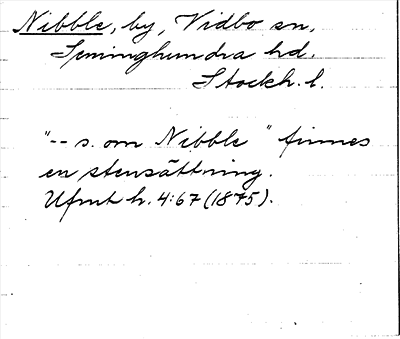 Nibble, by, Vidbo sn,
Seminghundra hd.
Stockh. l.
"-- s. om Nibble" finnes
en stensättning.
Ufmt h. 4:67 (1875).